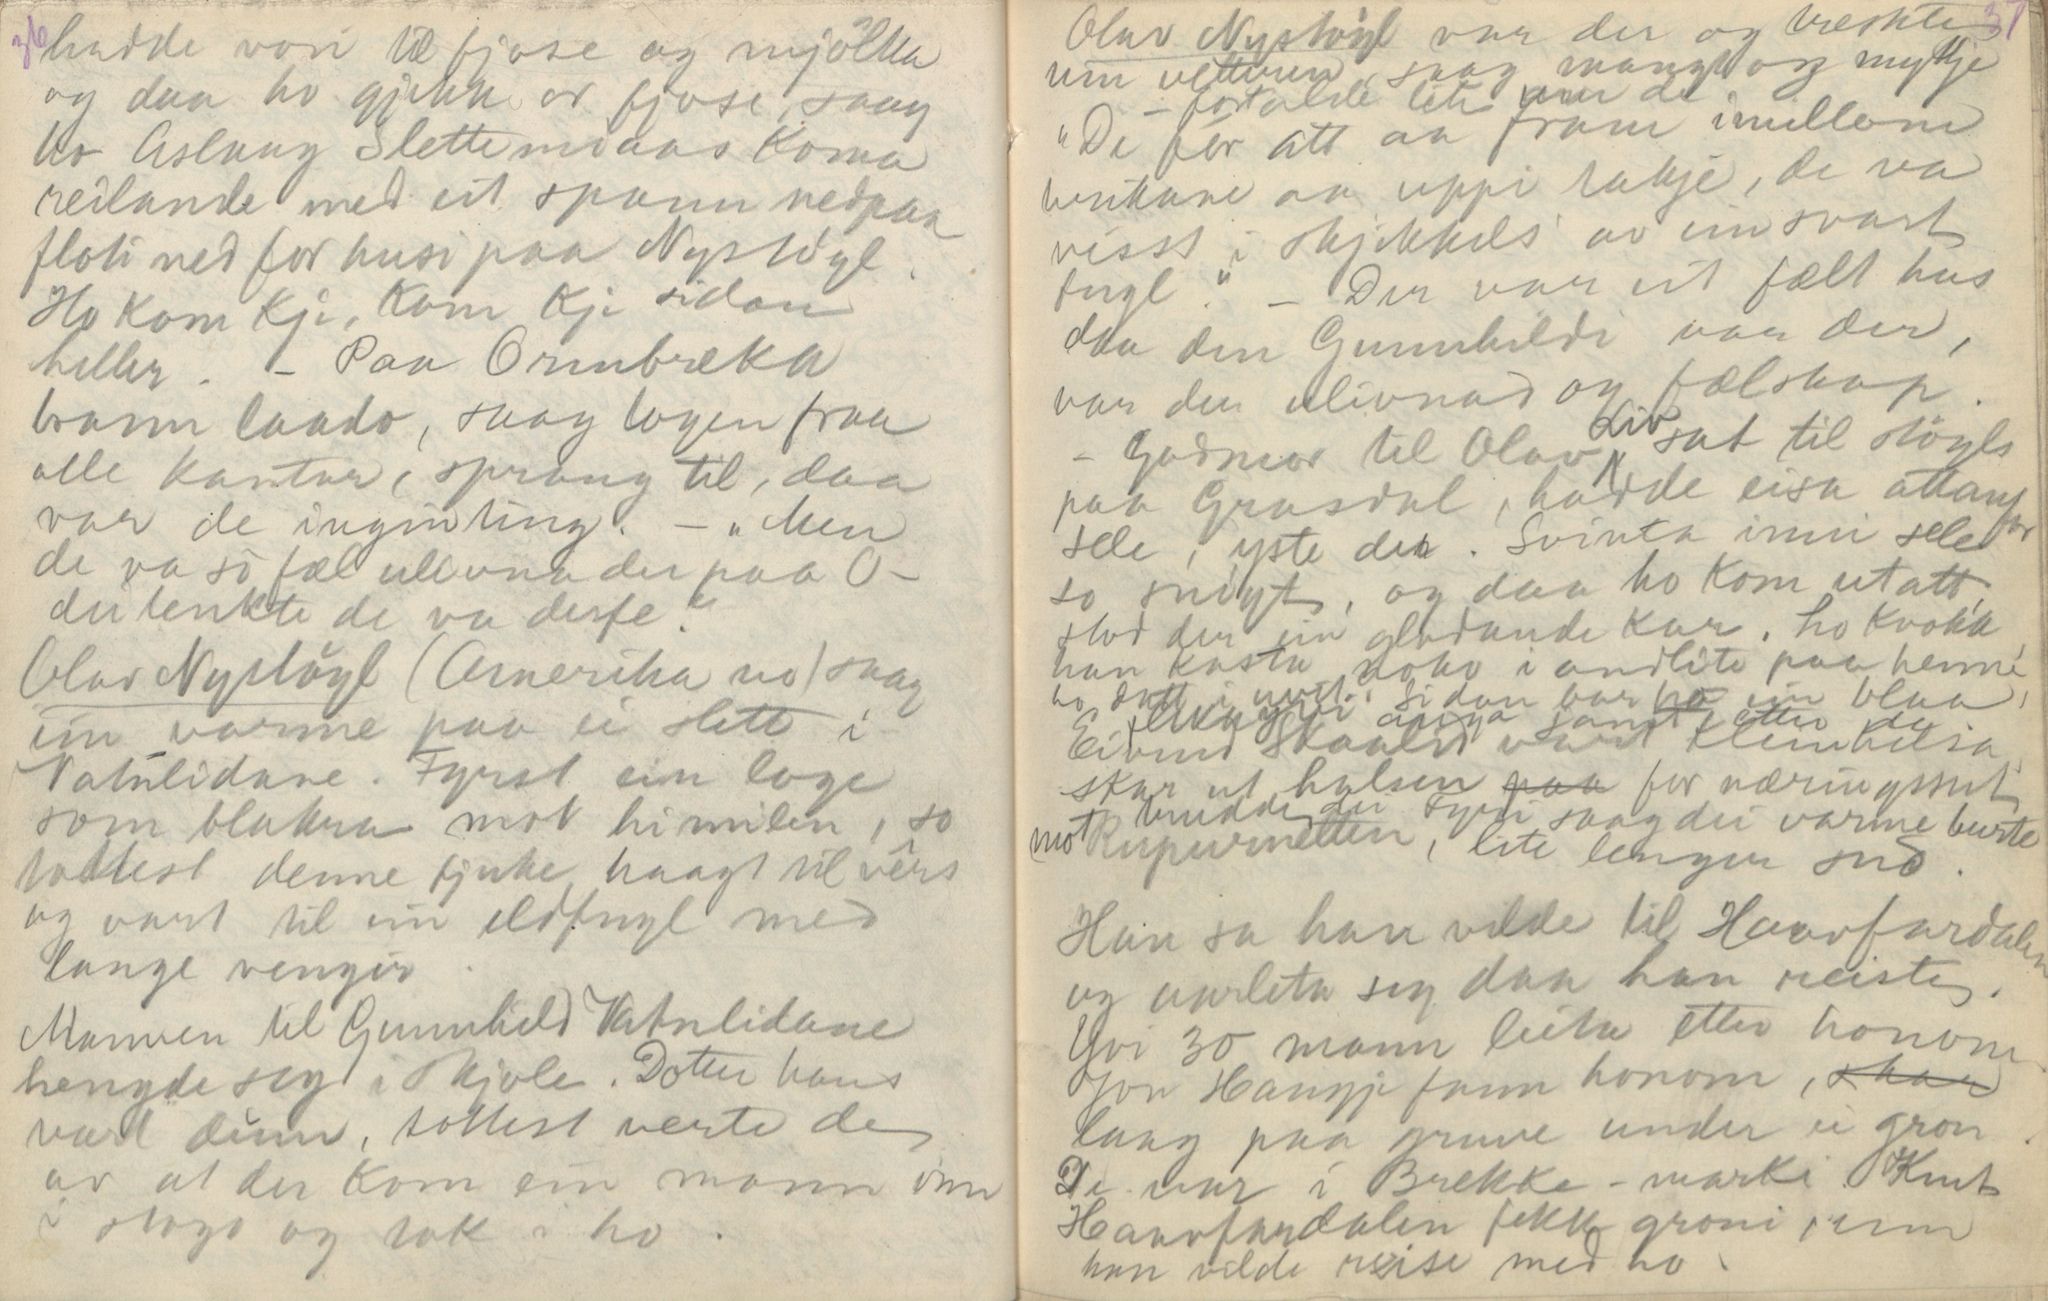 36
hadde vori til fjose og mjölka
og daa ho gjekk or fjose, saag
ho Aslaug Slettemoaas koma
reilande med eit spann nedpaa
floti ned for husi paa Nystöyl.
Ho kom kji, kom kji sidan
heller. – Paa Ormbrekk
brann laado, saag logen fraa
alle kantar, sprang til, daa
var de inginting. – "Men
de va so fæl ulivnad der paa O–
dei tenkte de va derfe."
Olav Nystöyl (Amerika no) saag
ein varme paa ei slett i
Vatnlidane. Fyrst ein loge
som blakra mot himilen, so
tottest denne fjuke haagt til vêrs
og vart til ein eldfugl med
lange vengir.
Mannen til Gunnhild Vatnlidane
hengde seg i Skjole. Dotter hans
vart deinn, tottest verte de
av at der kom ein mann inn
i stogo og tok i ho.
37
Olav Nystöyl var der og vreskte
um vetteren, saag mangt og mykje
– fortalde lite um de
"De fór att aa fram imillom
benkane aa uppi takje, de va
visst i skjikkels' av ein svart
fugl." – Der var eit fælt hus
daa den Gunnhildi var der,
var der ulivnad og fælskap.
– Godmor til Olav, Liv sat til stöyls
paa Grasdal, hadde eisa attanfor
sele, yste der. Svinta inni sele
so snögt, og daa ho kom ut att,
stod der ein glodande kar. Ho kvakk
han kasta noko i andlite paa henne,
ho datt i uvit. Sidan bar ho ein blaa
Eivind Skaalid vart kleinhelsa,
skar ut halsen paa for næringssut
budde der. Fyri saag dei varme burte
mot Rupurnatten, lite lenger sud.
Han sa han vilde til Haavfardalen
og avleta seg daa han reiste.
Yvi 30 mann leita etter honom
Jon Haugje fann honom, skar
laag paa gruve under ei gron.
De var i Brekke-marki. Knut
Haavfardalen fekk groni, um
han vilde reise med ho.